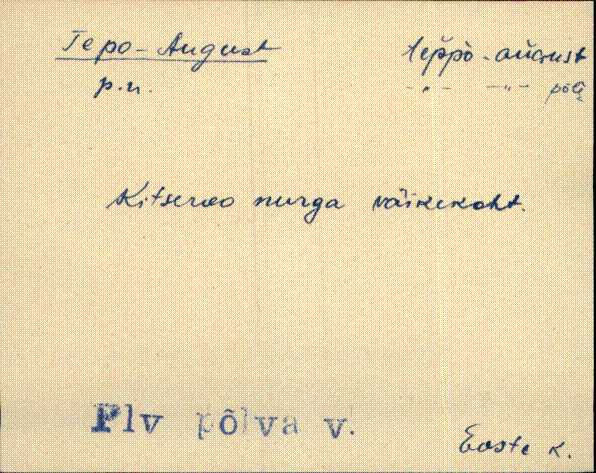 Tepo-August teppo-august
p.n. -"- -"- põli
Kitseroo nurga väikekoht.
Plv põlva v.
Eoste k.